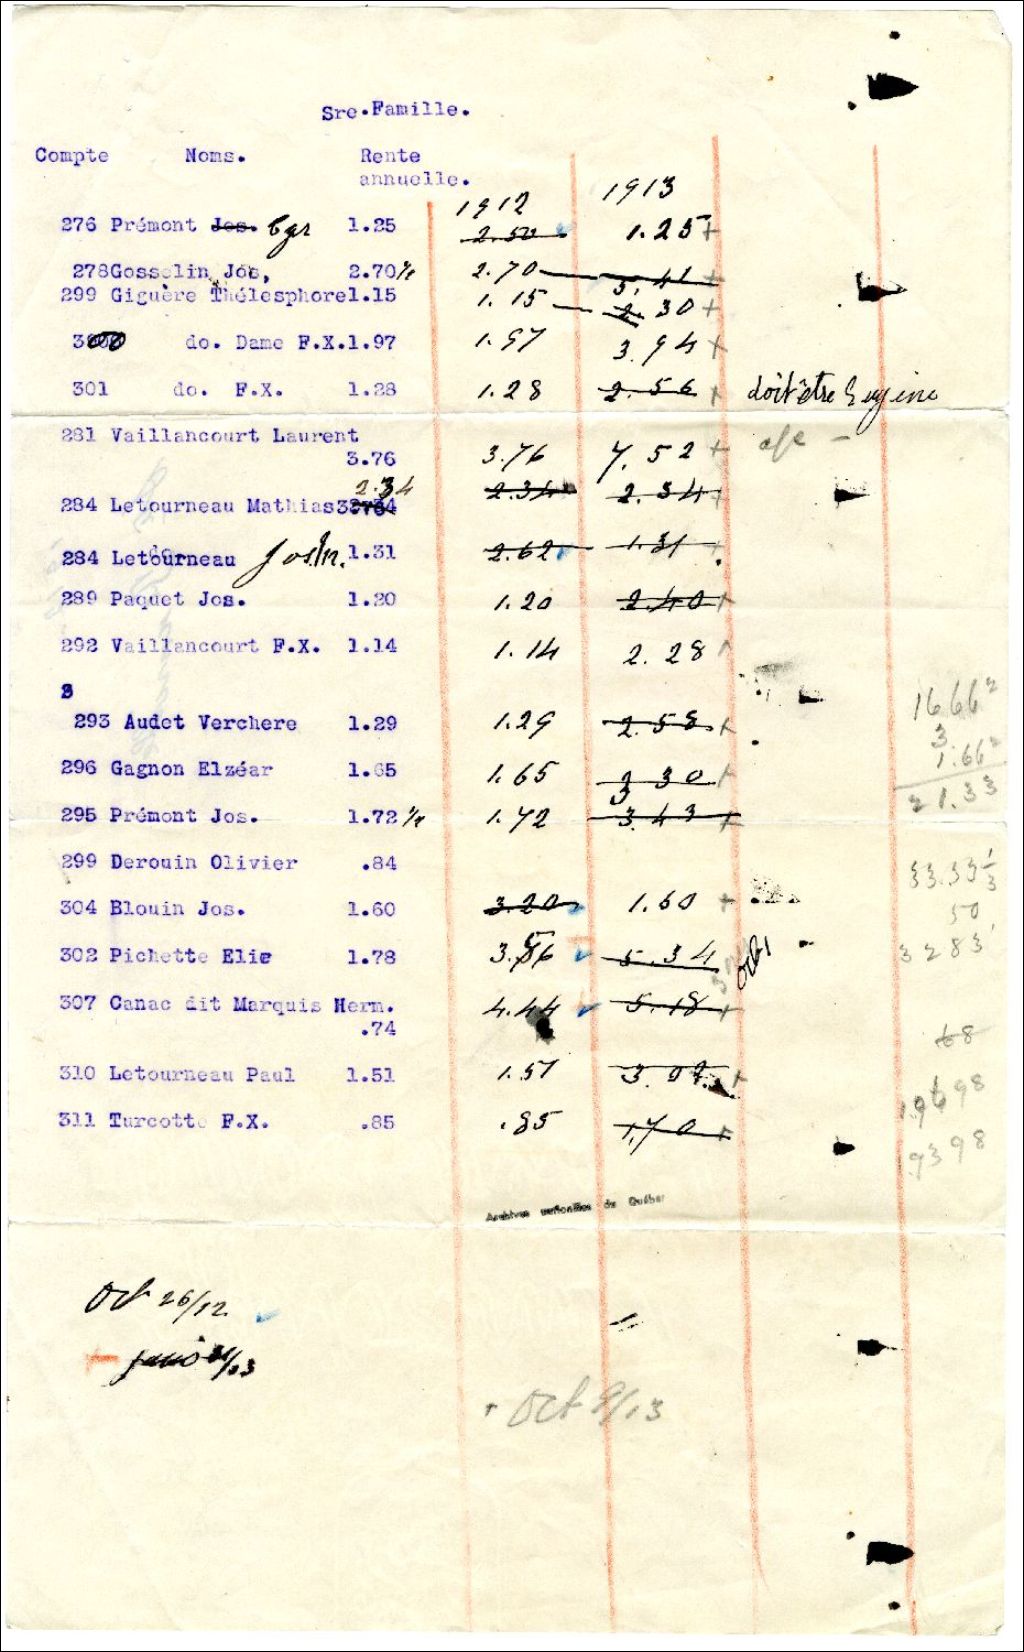 Sre.Famille.
Compte Noms. Rente
annuelle.
1912 1913
276 Prémont Jos. Cyr 1.25 2.50 1.25 +
278Gosselin Jos, 2.70½ 2.70 5.41 +
299 Giguère Thélesphore1.15 1.15 2.30 +
300 do. Dame F.X.1.97 1.97 3.94 +
301 do. F.X. 1.28 1.28 2.56 + doit être Eugène
281 Vaillancourt Laurent
3.76 3.76 7.52 +
2.34
284 Letourneau Mathias 2.34 2.34 +
284 Letourneau 1.31 2.62 1.31 +
289 Paquet Jos. 1.20 1.20 2.40 +
292 Vaillancourt F.X. 1.14 1.14 2.28 +
293 Audet Verchere 1.29 1.29 2.58 +
296 Gagnon Elzéar 1.65 1.65 3 30 +
295 Prémont Jos. 1.72½ 1.72 3.43 +
299 Derouin Olivier .84
304 Blouin Jos. 1.60 3.20 1.60 +
302 Pichette Elie 1.78 3.56 5.34
307 Canac dit Marquis Herm.
.74 4.44 5.18 +
310 Letourneau Paul 1.51 1.51 3.02 +
311 Turcotte F.X. .85 .85 1.70 +
16.66²
3.
1.66²
21.33
33.33⅓
50
3283
68
9398
Archives nationales du Québec
Oct 26/12
+ Oct 9/13